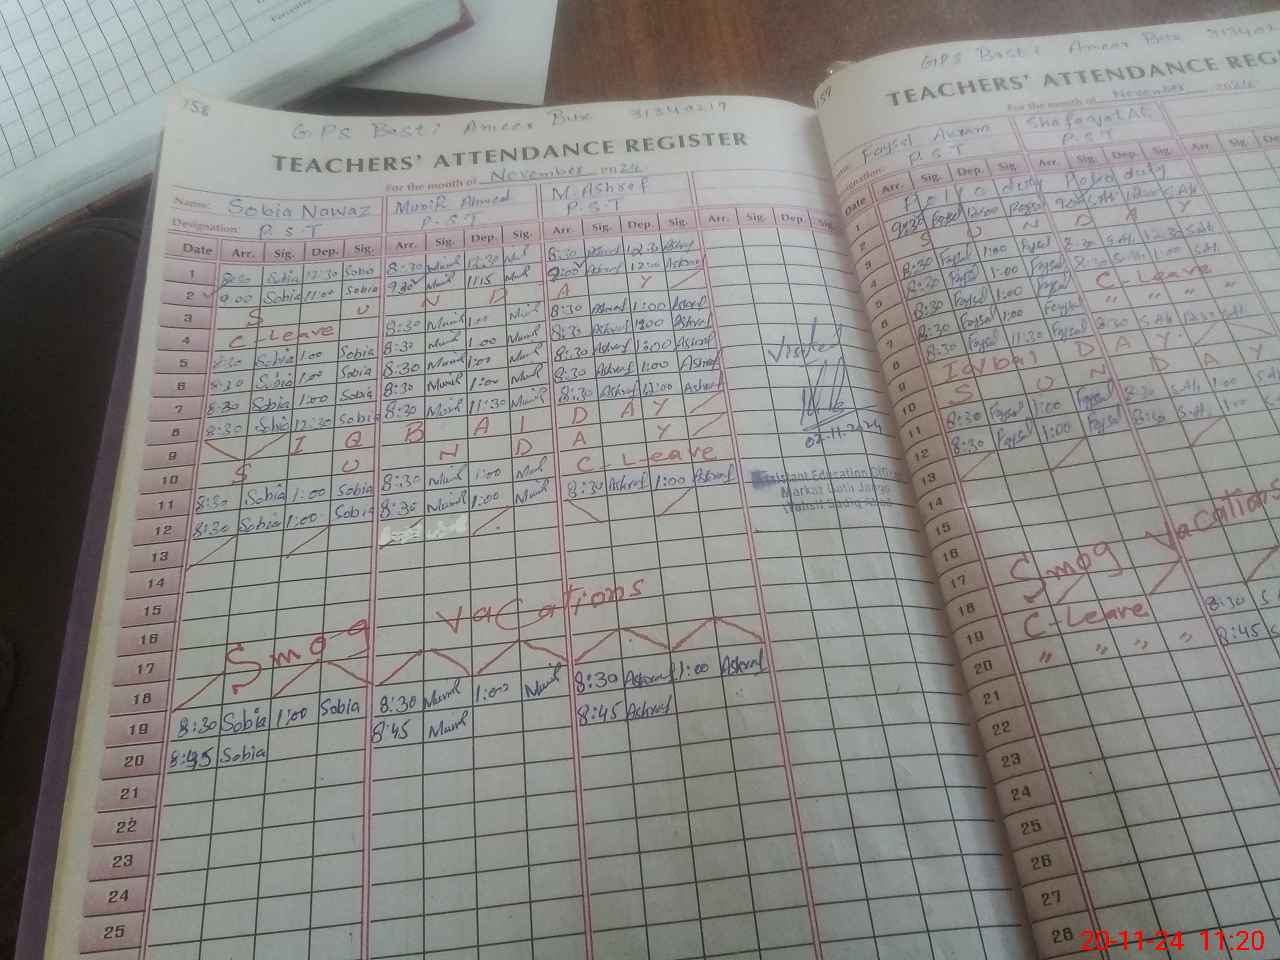 158
GPS Basti Ameer Bux 31340217
TEACHERS' ATTENDANCE REGISTER
For the month of November 2024
Name: Sobia Nawaz Munir Ahmed M. Ashraf
Designation: P.S.T P.S.T P.S.T
Date Arr. Sig. Dep. Sig. Arr. Sig. Dep. Sig. Arr. Sig. Dep. Sig. Arr. Sig. Dep. Sig.
1 8:30 Sobia 12:30 Sobia 8:30 Munir 12:30 8:30 Ashraf 12:30 Ashraf
2 9:00 Sobia 11:00 Sobia Munir 1:15 Munir 9:00 Ashraf 12:00 Ashraf
3 S U N D A Y
4 C-Leave 8:30 Munir 1:00 Munir 8:30 Ashraf 1:00 Ashraf
5 8:30 Sobia 1:00 Sobia 8:30 Munir 1:00 Munir 8:30 Ashraf 1:00 Ashraf
6 8:30 Sobia 1:00 Sobia 8:30 Munir 1:00 Munir 8:30 Ashraf 1:00 Ashraf
7 8:30 Sobia 1:00 Sobia 8:30 Munir 1:00 Munir 8:30 Ashraf 1:00 Ashraf
8 8:30 Sobia 12:30 Sobia 8:30 Munir 11:30 Munir 8:30 Ashraf 12:00 Ashraf
9 I Q B A L D A Y
10 S U N D A Y
11 8:30 Sobia 1:00 Sobia 8:30 Munir 1:00 Munir C-Leave
12 8:30 Sobia 1:00 Sobia 8:30 Munir 1:00 Munir 8:30 Ashraf 1:00 Ashraf
13
14
15
16
17 Smog Vacations
18
19 8:30 Sobia 1:00 Sobia 8:30 Munir 1:00 Munir 8:30 Ashraf 1:00 Ashraf
20 8:45 Sobia 8:45 Munir 8:45 Ashraf
21
22
23
24
25
Visited
07-11-2024
Assistant Education Officer
Markaz
159
GPS Basti Ameer Bux 313402
TEACHERS' ATTENDANCE REG
For the month of November 2024
Faysal Akram Shafaqat Ali
Designation: P.S.T P.S.T
Date Arr. Sig. Dep. Sig. Arr. Sig. Dep. Sig. Arr. Sig. De
1 Polio duty Polio duty
2 9:30 Faysal 12:00 Faysal 9:00 S.Ali 12:00 S.Ali
3 S U N D A Y
4 8:30 Faysal 1:00 Faysal 8:30 S.Ali 12:30 S.Ali
5 8:30 Faysal 1:00 Faysal 8:30 S.Ali 1:00 S.Ali
6 8:30 Faysal 1:00 Faysal C-Leave
7 8:30 Faysal 1:00 Faysal " " " "
8 8:30 Faysal 11:30 Faysal 8:30 S.Ali 12:30 S.Ali
9 Iqbal D A Y
10 S U N D A Y
11 8:30 Faysal 1:00 Faysal 8:30 S.Ali 1:00 S.Ali
12 8:30 Faysal 1:00 Faysal 8:30 S.Ali 1:00 S.Ali
13
14
15
16
17 Smog Vacations
18
19 C-Leave 8:30 S
20 " " " " 8:45 S
21
22
23
24
25
26
27
28
20-11-24 11:20